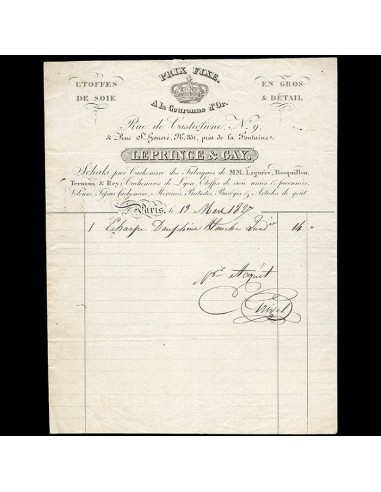 PRIX FIXE.
ETOFFES
DE SOIE
EN GROS
& DÉTAIL
A la Couronne d'Or.
Rue de Castiglione, N.º 9,
& Rue S.t Honoré, N.º près de la Fontaine.
LEPRINCE & GAY,
Schals pur Cachemire des Fabriques de MM. Lagorce, Bosquillon,
Ternaux & Rey; Cachemires de Lyon, Etoffes de soie unies & façonnées,
Velours, Tissus Cachemire, Mérinos, Batistes, Barèges & Articles de goût.
Paris, le 19 Mai
1 Echarpe Dauphine blanche 14 "
Pr. acquit